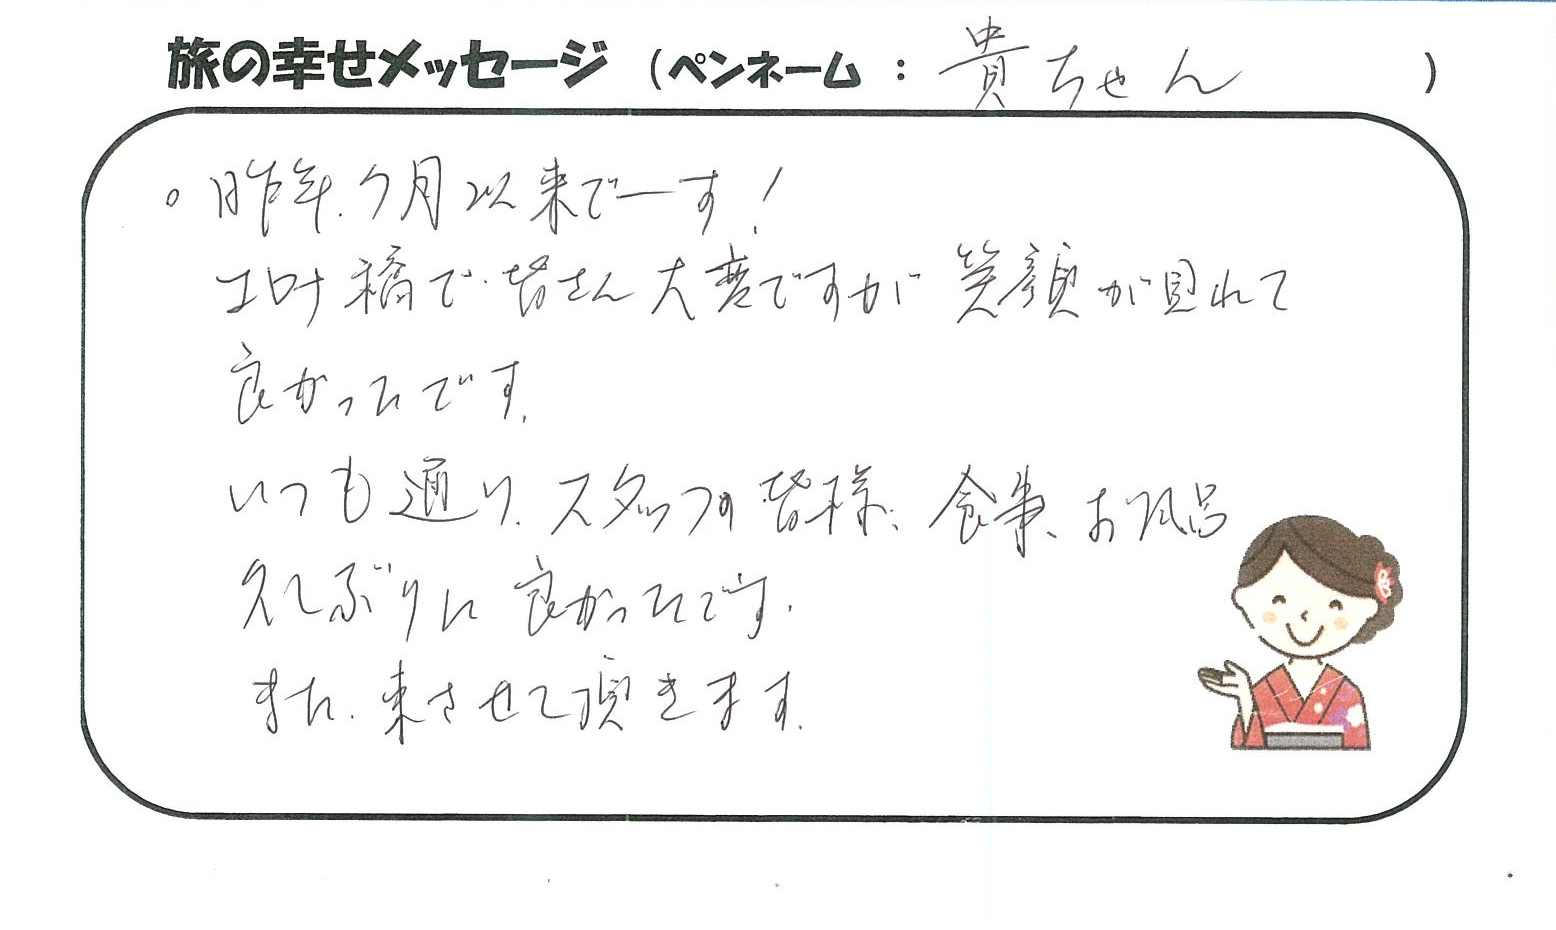 旅の幸せメッセージ (ペンネーム : 貴ちゃん )
。昨年.7月以来でーす!
コロナ禍で皆さん大変ですが 笑顔が見れて
良かったです.
いつも通り、スタッフの皆様、食事、お風呂
久しぶりに良かったです.
また、来させて頂きます.